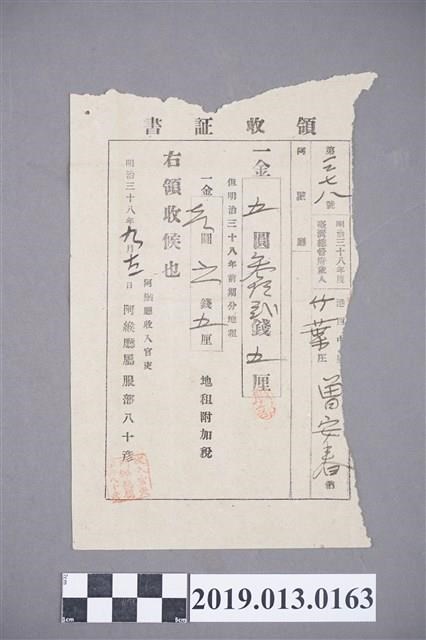 領收証書
第二七八號
明治三十八年度
臺灣總督府歲入
港西中里
竹葉庄
曾安春 納
阿緱廳
一金 五圓叁拾貳錢五厘
但明治三十八年前期分地租
一金 圓 錢五厘 地租附加稅
右領收候也
明治三十八年九月 日
阿緱廳收入官吏
阿緱廳屬 服部八十彥
7cm
1cm
5cm
2019.013.0163